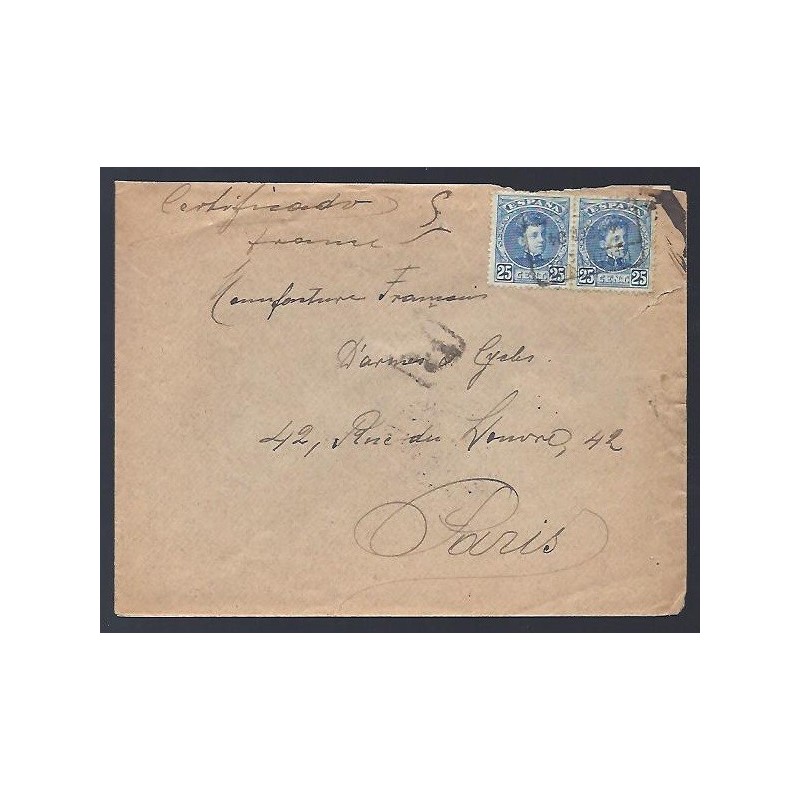 Certificado
france
ESPAÑA ESPAÑA
25 25 25 25
Manufacture Français
D'armes & Cycles.
42, Rue du Louvre, 42
Paris